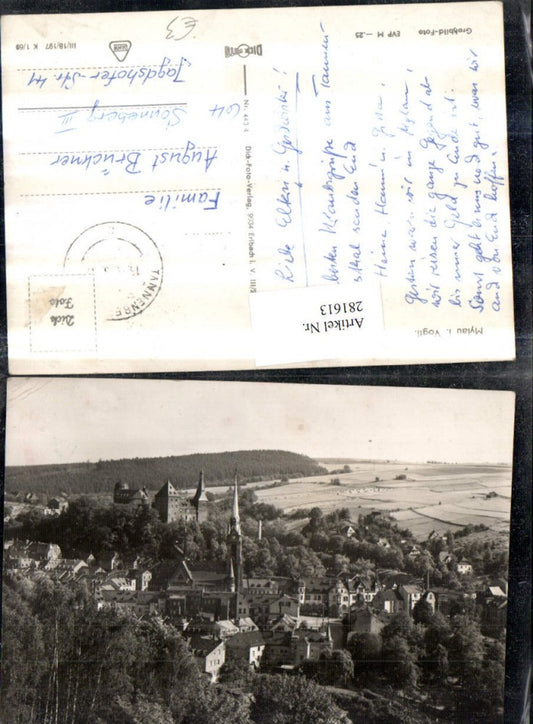 Mylau i. Vogtl.
Liebe Eltern u. Geschwister!
Die besten Urlaubsgrüße aus Tannen-
senden Euch
Heinz, Hanni u.
Gestern waren wir in Mylau,
wir reisen die ganze Gegend ab
bis unser Geld zu Ende ist.
Sonst geht es uns noch gut, was wir
auch von Euch hoffen.
Großbild-Foto EVP M -.25
DICK FOTO
Nr. 443 4 Dick-Foto-Verlag, 9134 Erlbach i. V. III/S
III/18/197 K 1/69
€3
Dick
Foto
TANNENBE
Familie
August Brückner
64 Sonneberg III
Jagdshofer-Str. 41
Artikel Nr.
281613